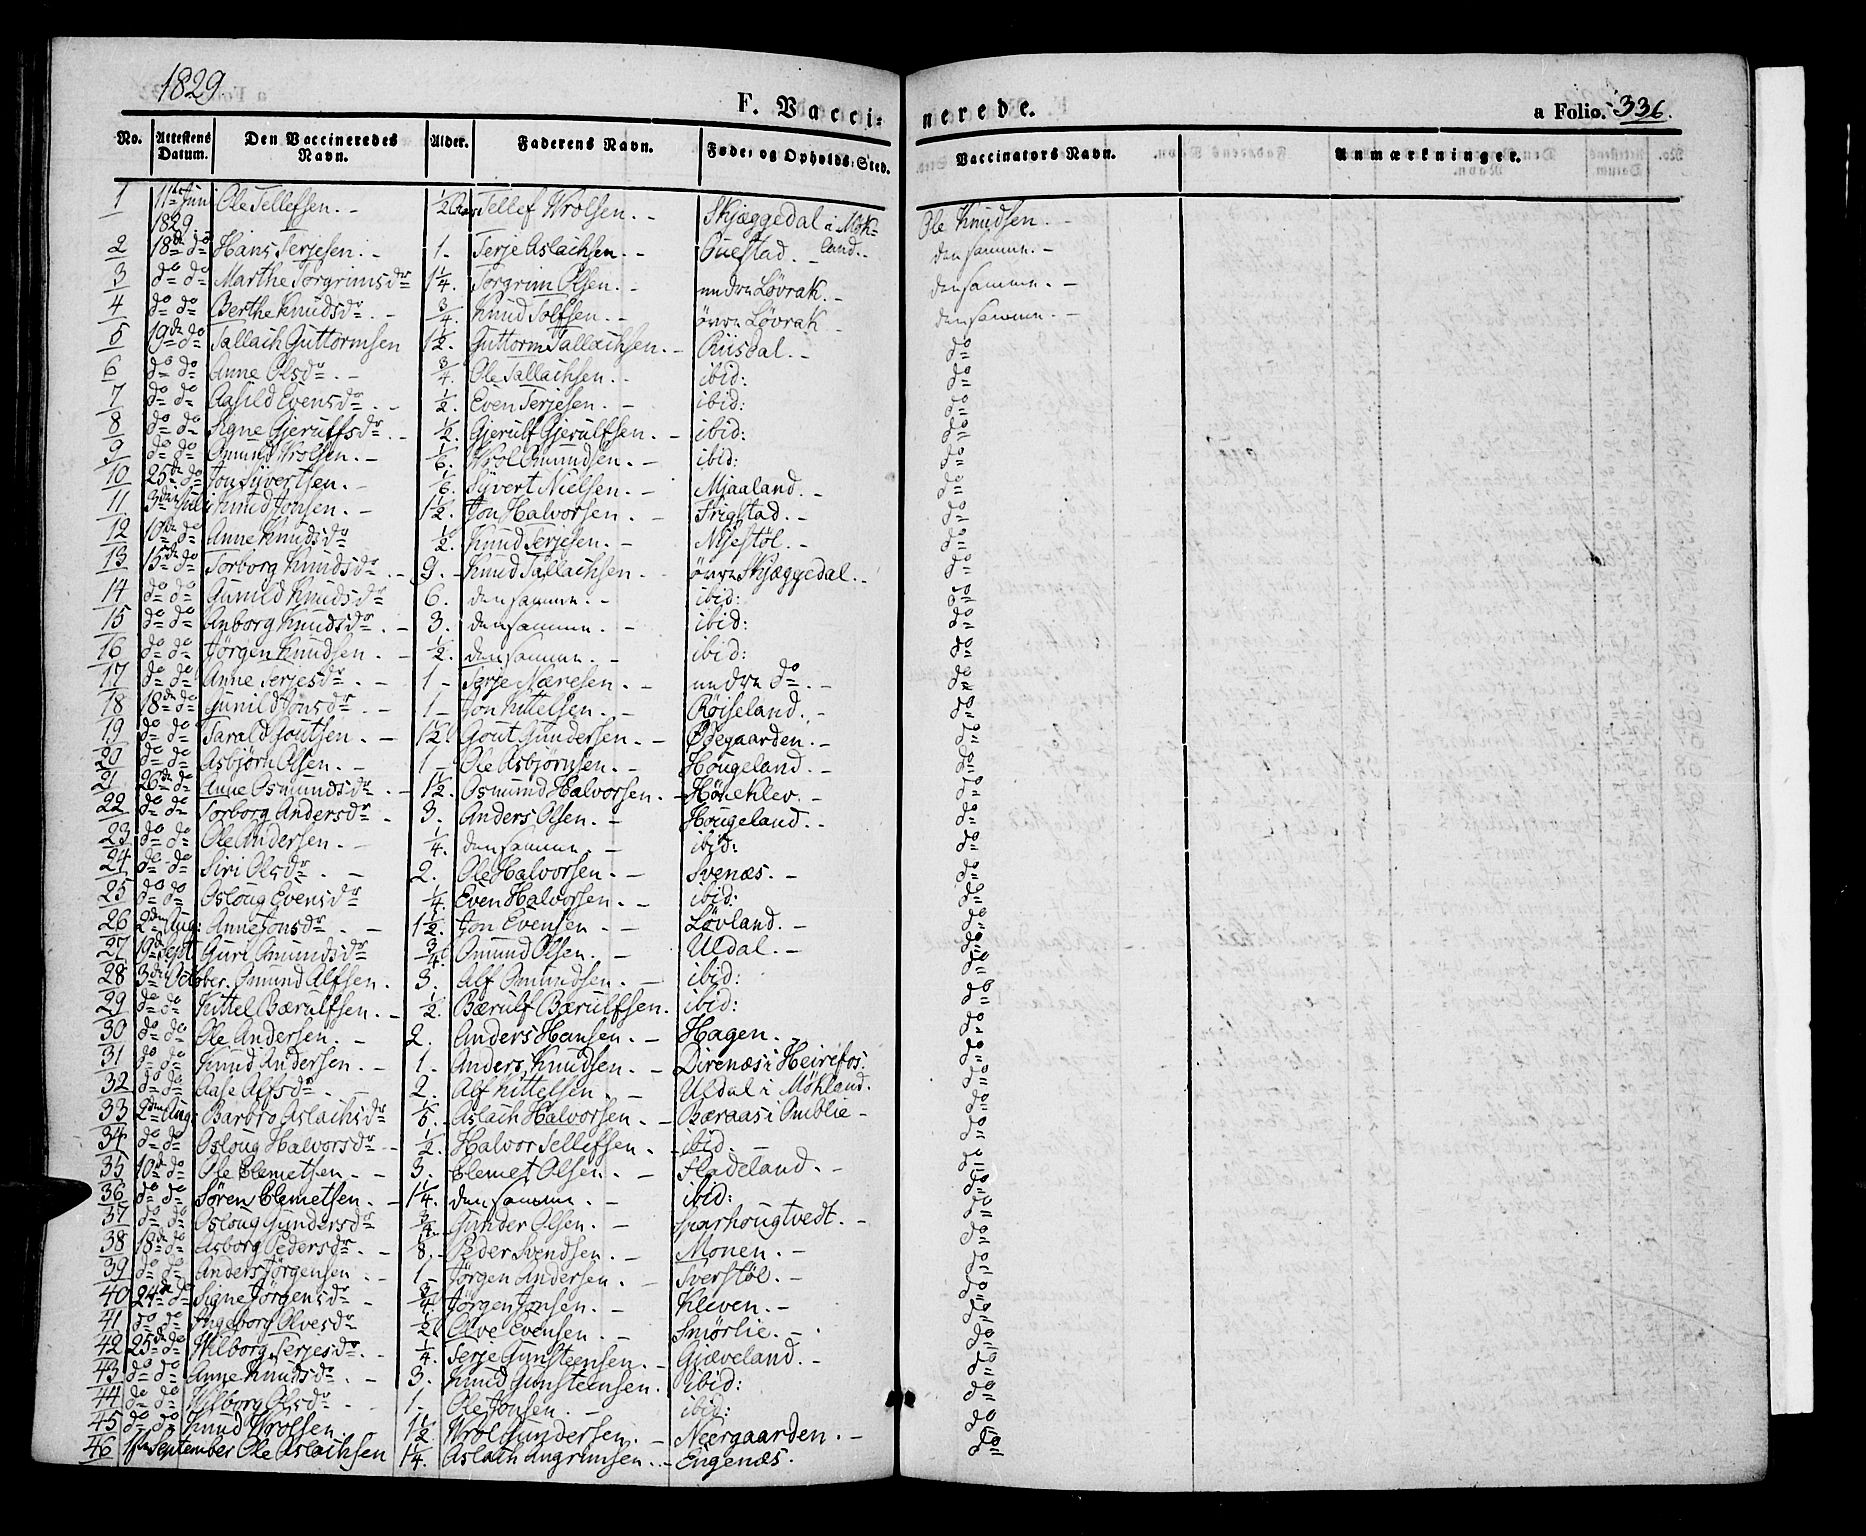 1829
F. Vacci-
nerede.
a Folio. 336.
No. Attestens Datum. Den Vaccineredes Navn. Alder. Faderens Navn. Føde- og Opholds-Sted. Vaccinators Navn. Anmærkninger.
1 11te Jun 1829 Ole Tellefsen. - 1/2 Tellef Wrolsen. - Skjæggedal i Møk- land. Ole Knudsen. -
2 18de do Hans Terjesen. - 1. Terje Aslachsen. - Ouestad. - densamme. -
3 do do Marthe Torgrimsdr 1 1/4. Torgrim Olsen. - nedre Løvrak. - densamme. -
4 do do Berthe Knudsdr. - 3/4 Knud Tolfsen. - øvre Løvrak - densamme. -
5 19de do Tallach Guttormsen 1 1/2. Guttorm Tallachsen. - Riisdal. - do
6 do do Anne Olsdr. - 3/4. Ole Tallachsen. - ibid: do
7 do do Aasild Evensdr. - 1/2. Even Terjesen. - ibid: do
8 do do Signe Gjerulfsdr. - 1/2. Gjerulf Gjerulfsen. - ibid: do
9 do do Omund Wrolsen. - 1/6. Wrol Omundsen. - ibid: do
10 25de do Jon Syvertsen. - 1/6. Syvert Nielsen. - Mjaaland. - do
11 3die Juli Knud Jonsen. - 1 1/2. Jon Halvorsen. - Frigstad. - do
12 10de do Anne Knudsdr 1/2. Knud Terjesen. - Nyestøl. - do
13 15de do Torborg Knudsdr. - 9. - Knud Tallachsen. øvre Skjæggedal. - do
14 do do Gunild Knudsdr 6. densamme. - ibid: do
15 do do Anborg Knudsdr. - 3. densamme. - ibid: do
16 do do Jørgen Knudsen. - 1/2. densamme. - ibid: do
17 do do Anne Terjesdr. - 1 - Terje Næresen. - nedre do. - do
18 18de do Gunild Jonsdr. - 1 - Jon Kittelsen. - Røiseland. - do
19 do do Tarald Goutsen. - 1 1/2. Gout Gundersen. - Ødegaarden. - do
20 do do Asbjørn Olsen. - 1 - Ole Asbjørnsen. - Hougeland. - do
21 26de do Anne Osmundsdr. - 1 1/2. Osmund Halvorsen. - Høneklev. - do
22 do do Torborg Andersdr. - 3. Anders Olsen. - Hougeland. - do
23 do do Ole Andersen. - 1/4. densamme. - ibid: do
24 do do Siri Olsdr. - 2. Ole Halvorsen. - Svenæs. - do
25 do do Osloug Evensdr 1/4. Even Halvorsen. - ibid: do
26 2den Aug: Anne Jonsdr. - 1 1/2. Jon Evensen. - Løvland. - do
27 19de Sept Guri Omundsdr 3/4. Omund Olsen. - Uldal. - do
28 3die October. Omund Alfsen. 3. Alf Omundsen. - ibid: do
29 do do Kittel Bærulfsen. - 1/2. Bærulf Bærulfsen. ibid: do
30 do do Ole Andersen. - 2. Anders Hansen. - Hagen. do
31 do do Knud Andersen. - 1. Anders Knudsen. - Direnæs i Heirefos. do
32 do do Aase Alfsdr. - 2. Alf Kittelsen. - Uldal i Møkland. do
33 2den Aug. Barbro Aslachsdr 1/5. Aslach Halvorsen. - Bæraas i Omblie - do
34 do do Osloug Halvorsdr - 1/2. Halvor Tellefsen. - ibid. - do
35 10de do Ole Clemetsen. - 3. Clemet Olsen. - Fladeland. - do
36 do do Søren Clemetsen. - 1 1/4. densamme. - ibid: do
37 do do Osloug Gundersdr 3/4. Gunder Olsen. - Sparhougtvedt. - do
38 18de do Asborg Pedersdr. - 8. - Peder Svendsen. - Monen. - do
39 do do Anders Jørgensen - 1 - Jørgen Andersen. - Sverstøl. - do
40 24de do Signe Jørgensdr - 3/4. Jørgen Jonsen. - Kleven. - do
41 do do Ingeborg Olvesdr 1/2. Olve Evensen. - Smørlie. - do
42 25de do Wilborg Terjesdr. - 1/4. Terje Gunsteensen. - Gjæveland. - do
43 do do Anne Knudsdr. - 3. Knud Gunsteensen. ibid: do
44 do do Wilborg Olsdr - 1 - Ole Jonsen. - ibid: do
45 do do Knud Wrolsen. 1 1/2 Wrol Gundersen. - Neergaarden. - do
46 1ste September Ole Aslachsen 1 1/4. Aslach Angrimsen. - Eigenæs. do